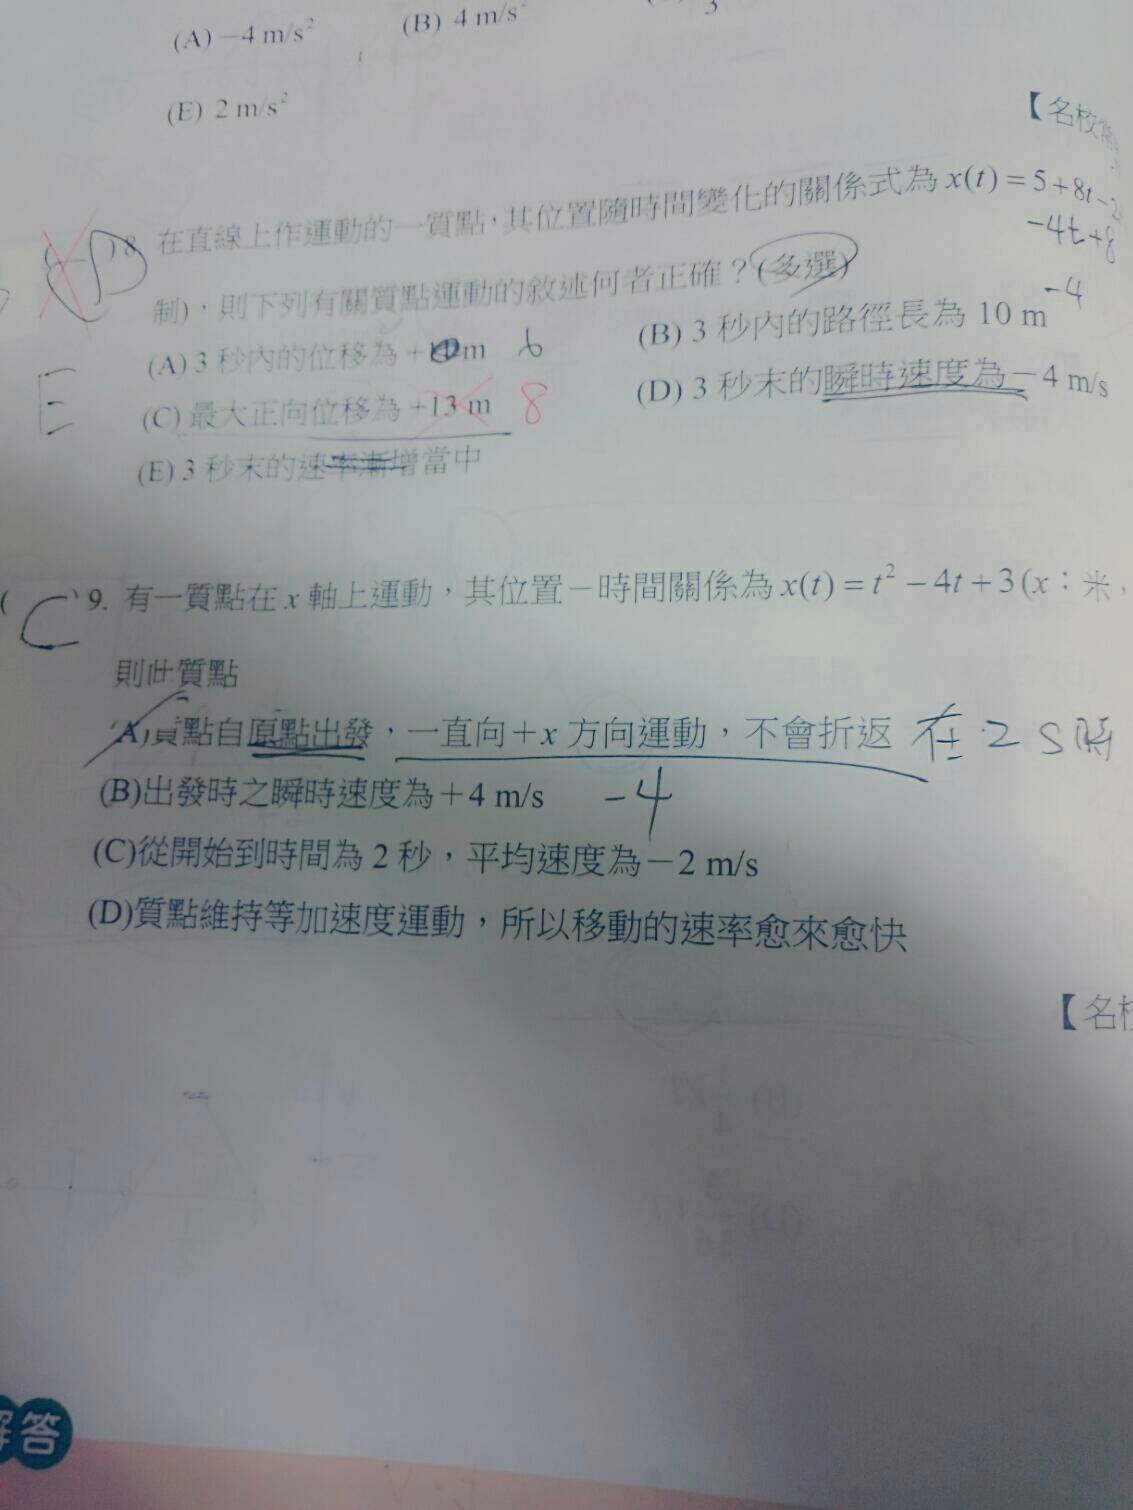 (A) −4 m/s² (B) 4 m/s²
(E) 2 m/s²
【名校
8. 在直線上作運動的一質點，其位置隨時間變化的關係式為 x(t) = 5 + 8t − 2
−4t+8
制)，則下列有關質點運動的敘述何者正確？(多選)
−4
(A) 3 秒內的位移為 + m 6 (B) 3 秒內的路徑長為 10 m
(C) 最大正向位移為 +13 m 8 (D) 3 秒末的瞬時速度為 −4 m/s
E
(E) 3 秒末的速率漸增當中
C 9. 有一質點在 x 軸上運動，其位置－時間關係為 x(t) = t² − 4t + 3 (x：米，
則此質點
(A)質點自原點出發，一直向＋x 方向運動，不會折返 在 2 s 時
(B)出發時之瞬時速度為＋4 m/s −4
(C)從開始到時間為 2 秒，平均速度為－2 m/s
(D)質點維持等加速度運動，所以移動的速率愈來愈快
【名校
解答